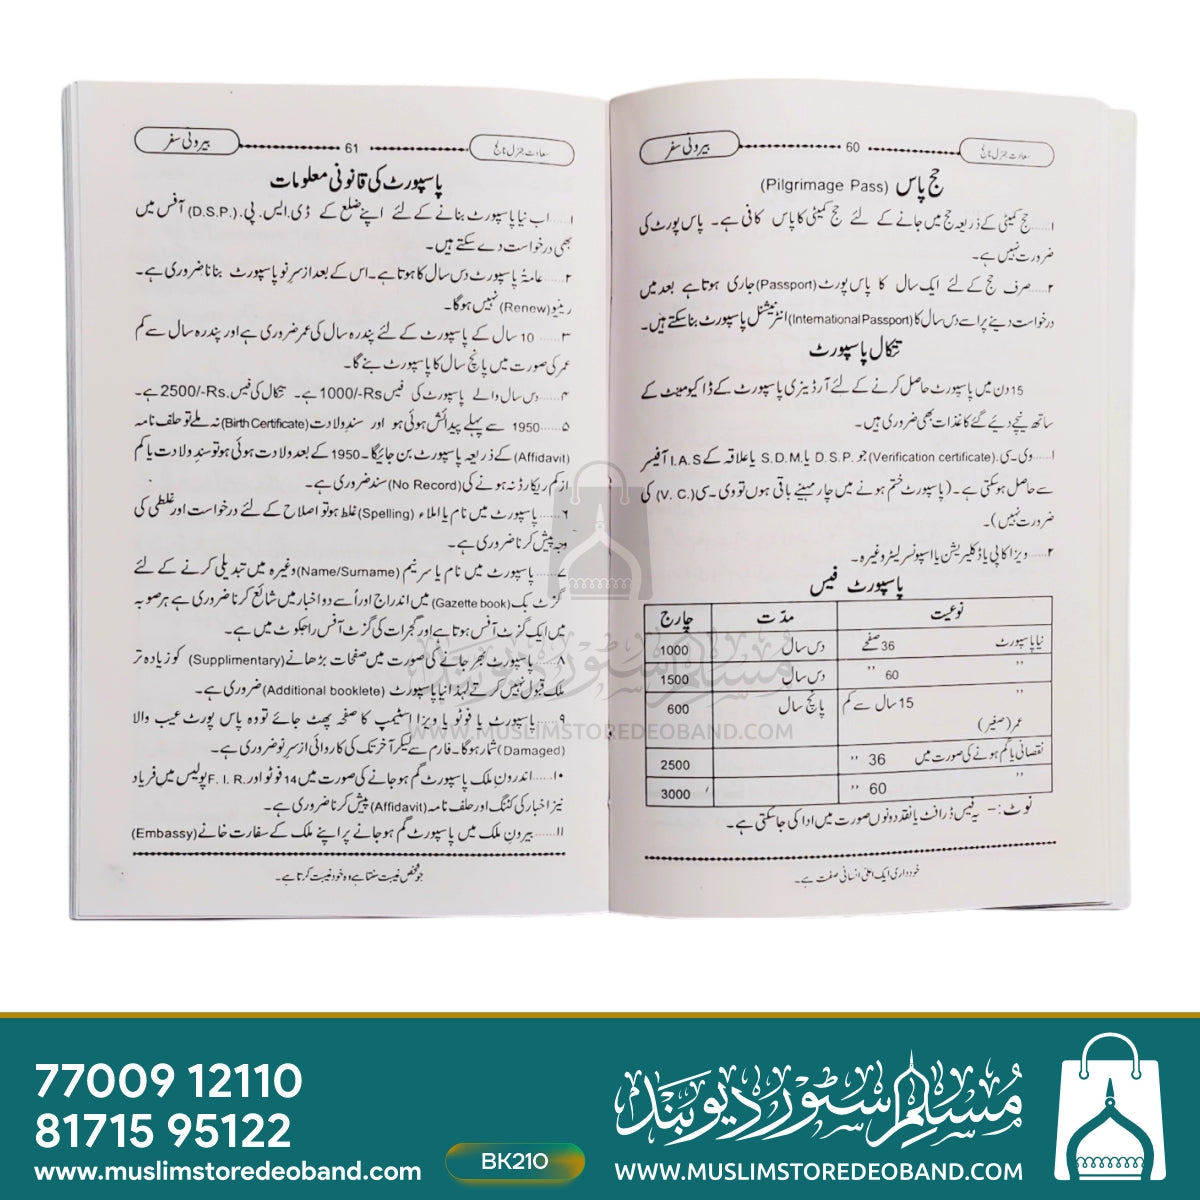 سعادت جنرل نالج 60 بیرونی سفر
حج پاس (Pilgrimage Pass)
۱......حج کمیٹی کے ذریعہ حج میں جانے کے لئے حج کمیٹی کا پاس کافی ہے۔ پاس پورٹ کی
ضرورت نہیں ہے۔
۲......صرف حج کے لئے ایک سال کا پاس پورٹ(Passport) جاری ہوتا ہے بعد میں
درخواست دینے پر اسے دس سال کا (International Passport) انٹرنیشنل پاسپورٹ بنا سکتے ہیں۔
تتکال پاسپورٹ
15 دن میں پاسپورٹ حاصل کرنے کے لئے آرڈینری پاسپورٹ کے ڈاکیومینٹ کے
ساتھ نیچے دیئے گئے کاغذات بھی ضروری ہیں۔
۱......وی۔سی۔(Verification certificate) جو D.S.P. یا S.D.M. یا علاقہ کے I.A.S آفیسر
سے حاصل ہو سکتی ہے۔ (پاسپورٹ ختم ہونے میں چار مہینے باقی ہوں تو وی۔سی(V. C.) کی
ضرورت نہیں)۔
۲......ویزا کاپی یا ڈکلیریشن یا اسپونسر لیٹر وغیرہ۔
پاسپورٹ فیس
نوعیت مدّت چارج
نیا پاسپورٹ 36 صفحے دس سال 1000
" 60 " دس سال 1500
" 15 سال سے کم پانچ سال 600
عمر (صغیر)
نقصانی یا گم ہونے کی صورت میں 36 " 2500
" 60 " 3000
نوٹ:- یہ فیس ڈرافٹ یا نقد دونوں صورت میں ادا کی جا سکتی ہے۔
خودداری ایک اعلیٰ انسانی صفت ہے۔
سعادت جنرل نالج 61 بیرونی سفر
پاسپورٹ کی قانونی معلومات
۱...... اب نیا پاسپورٹ بنانے کے لئے اپنے ضلع کے ڈی۔ایس۔پی۔(D.S.P.) آفس میں
بھی درخواست دے سکتے ہیں۔
۲...... عامۃً پاسپورٹ دس سال کا ہوتا ہے۔ اس کے بعد ازسرِ نو پاسپورٹ بنانا ضروری ہے۔
رینیو(Renew) نہیں ہوگا۔
۳...... 10 سال کے پاسپورٹ کے لئے پندرہ سال کی عمر ضروری ہے اور پندرہ سال سے کم
عمر کی صورت میں پانچ سال کا پاسپورٹ بنے گا۔
۴......دس سال والے پاسپورٹ کی فیس Rs-/1000 ہے۔ تتکال کی فیس Rs.-/2500 ہے۔
۵......1950 سے پہلے پیدائش ہوئی ہو اور سندِ ولادت(Birth Certificate) نہ ملے تو حلف نامہ
(Affidavit) کے ذریعہ پاسپورٹ بن جائیگا۔ 1950 کے بعد ولادت ہوئی ہو تو سندِ ولادت یا کم
از کم ریکارڈ نہ ہونے کی (No Record) سند ضروری ہے۔
۶...... پاسپورٹ میں نام یا املاء (Spelling) غلط ہو تو اصلاح کے لئے درخواست اور غلطی کی
وجہ پیش کرنا ضروری ہے۔
۷...... پاسپورٹ میں نام یا سرنیم (Name/Surname) وغیرہ میں تبدیلی کرنے کے لئے
گزٹ بک(Gazette book) میں اندراج اور اُسے دو اخبار میں شائع کرنا ضروری ہے ہر صوبہ
میں ایک گزٹ آفس ہوتا ہے اور گجرات کی گزٹ آفس راجکوٹ میں ہے۔
۸...... پاسپورٹ بھر جانے کی صورت میں صفحات بڑھانے(Supplimentary) کو زیادہ تر
ملک قبول نہیں کرتے لہذا نیا پاسپورٹ (Additional booklete) ضروری ہے۔
۹...... پاسپورٹ یا فوٹو یا ویزا اسٹیمپ کا صفحہ پھٹ جائے تو وہ پاس پورٹ عیب والا
(Damaged) شمار ہوگا۔ فارم سے لیکر آخر تک کی کاروائی ازسرِ نو ضروری ہے۔
۱۰......اندرونِ ملک پاسپورٹ گم ہو جانے کی صورت میں 14 فوٹو اور F. I. R. پولیس میں فریاد
نیز اخبار کی کٹنگ اور حلف نامہ (Affidavit) پیش کرنا ضروری ہے۔
۱۱...... بیرونِ ملک میں پاسپورٹ گم ہو جانے پر اپنے ملک کے سفارت خانے (Embassy)
جو شخص غیبت سنتا ہے وہ خود غیبت کرتا ہے۔
مسلم سٹور دیوبند
WWW.MUSLIMSTOREDEOBAND.COM
77009 12110
81715 95122
www.muslimstoredeoband.com
BK210
مسلم سٹور دیوبند
WWW.MUSLIMSTOREDEOBAND.COM